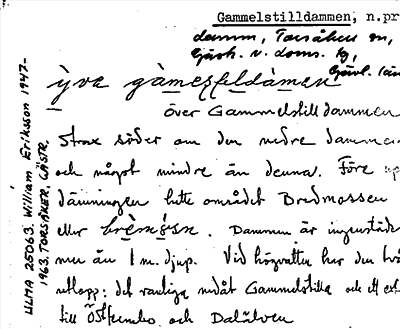 Gammelstilldammen, n.pr
damm, Torsåkers sn,
Gästr. v. doms. hg,
Gävl. län
ỳva gàmesṭeldàmen
över Gammelstilldammen
Strax söder om den nedre dammen
och något mindre än denna. Före upp-
dämningen hette området Bredmossen
eller brèmåsn. Dammen är ingenstädes
mer än 1 m. djup. Vid högvatten har den två
utlopp: det vanliga nedåt Gammelstilla och ett
till Österbo och Dalälven
ULMA 25063. William Eriksson 1947-
1963. TORSÅKER. GÄSTR.